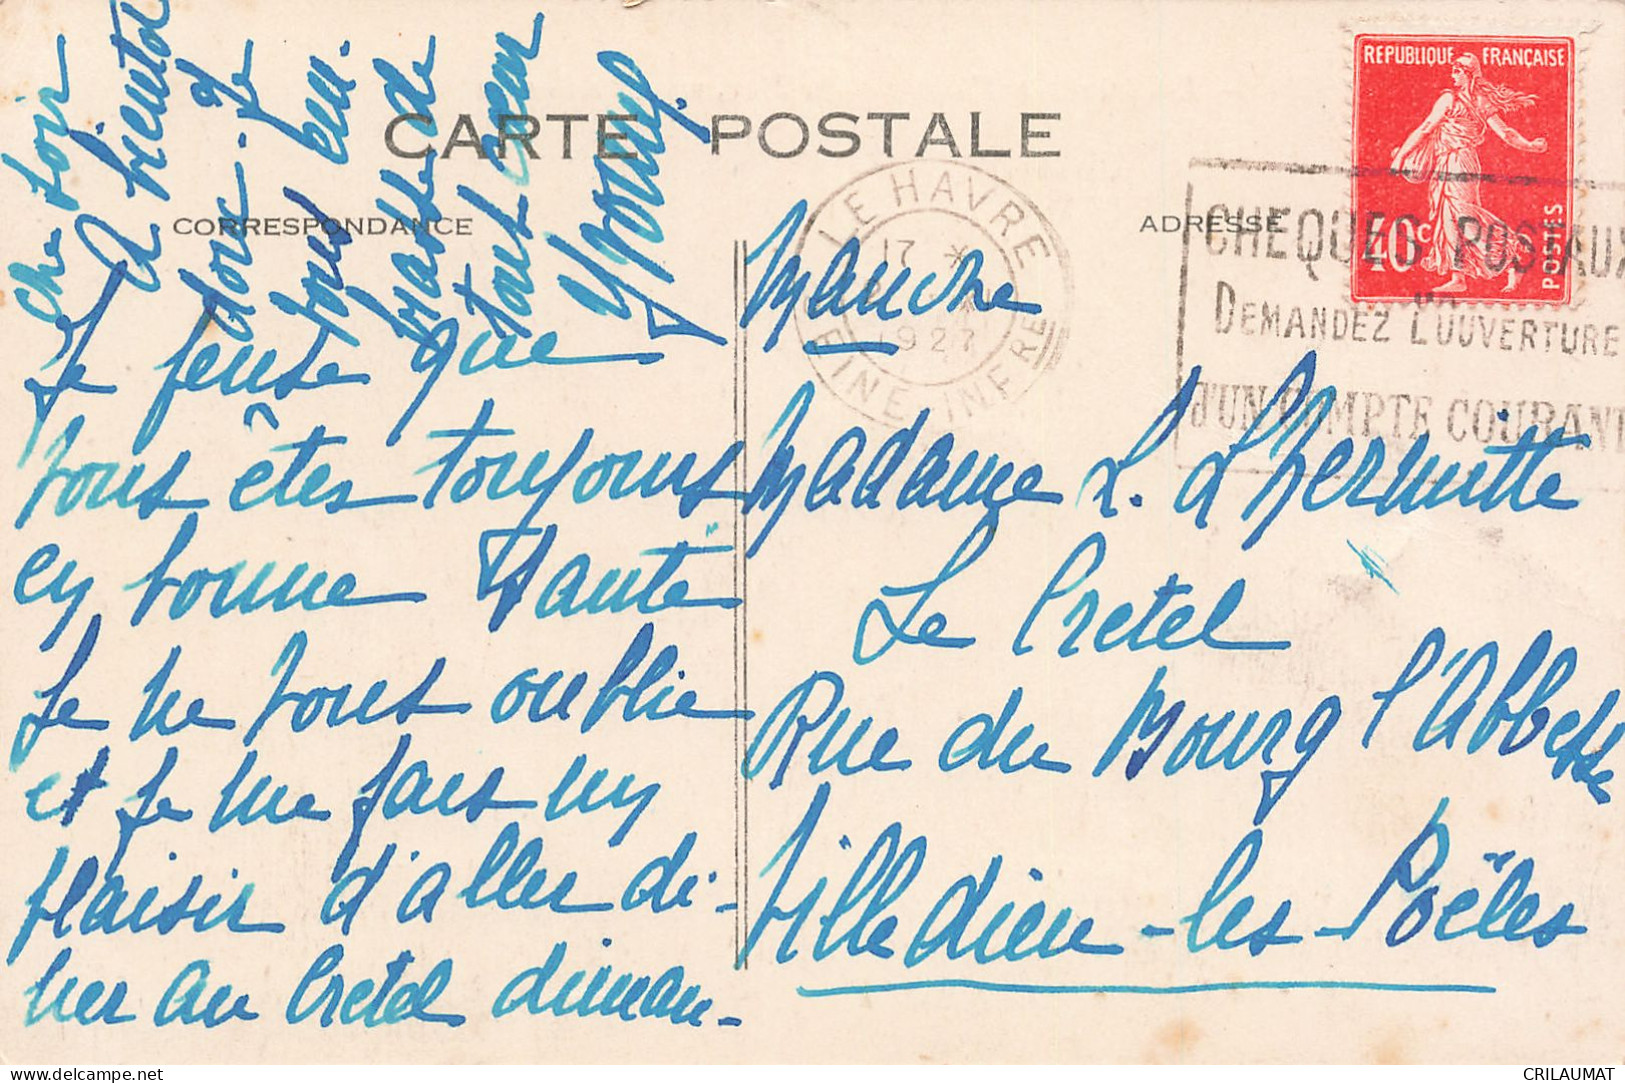 CARTE POSTALE
CORRESPONDANCE
ADRESSE
REPUBLIQUE FRANÇAISE
40c
POSTES
LE HAVRE
17 *
1927
SEINE INFRE
CHEQUES POSTAUX
DEMANDEZ L'OUVERTURE
D'UN COMPTE COURANT
Je pense que
vous êtes toujours
en bonne santé
Je ne vous oublie
et je me fais un
plaisir d'aller dî-
ner au Cretel diman-
che soir
A bientôt
donc. Je
vous em-
brasse de
tout cœur
Yvonne
Manche
Madame L. Lhermitte
Le Cretel
Rue du Bourg l'Abbesse
Villedieu-les-Poëles
delcampe.net
CRILAUMAT